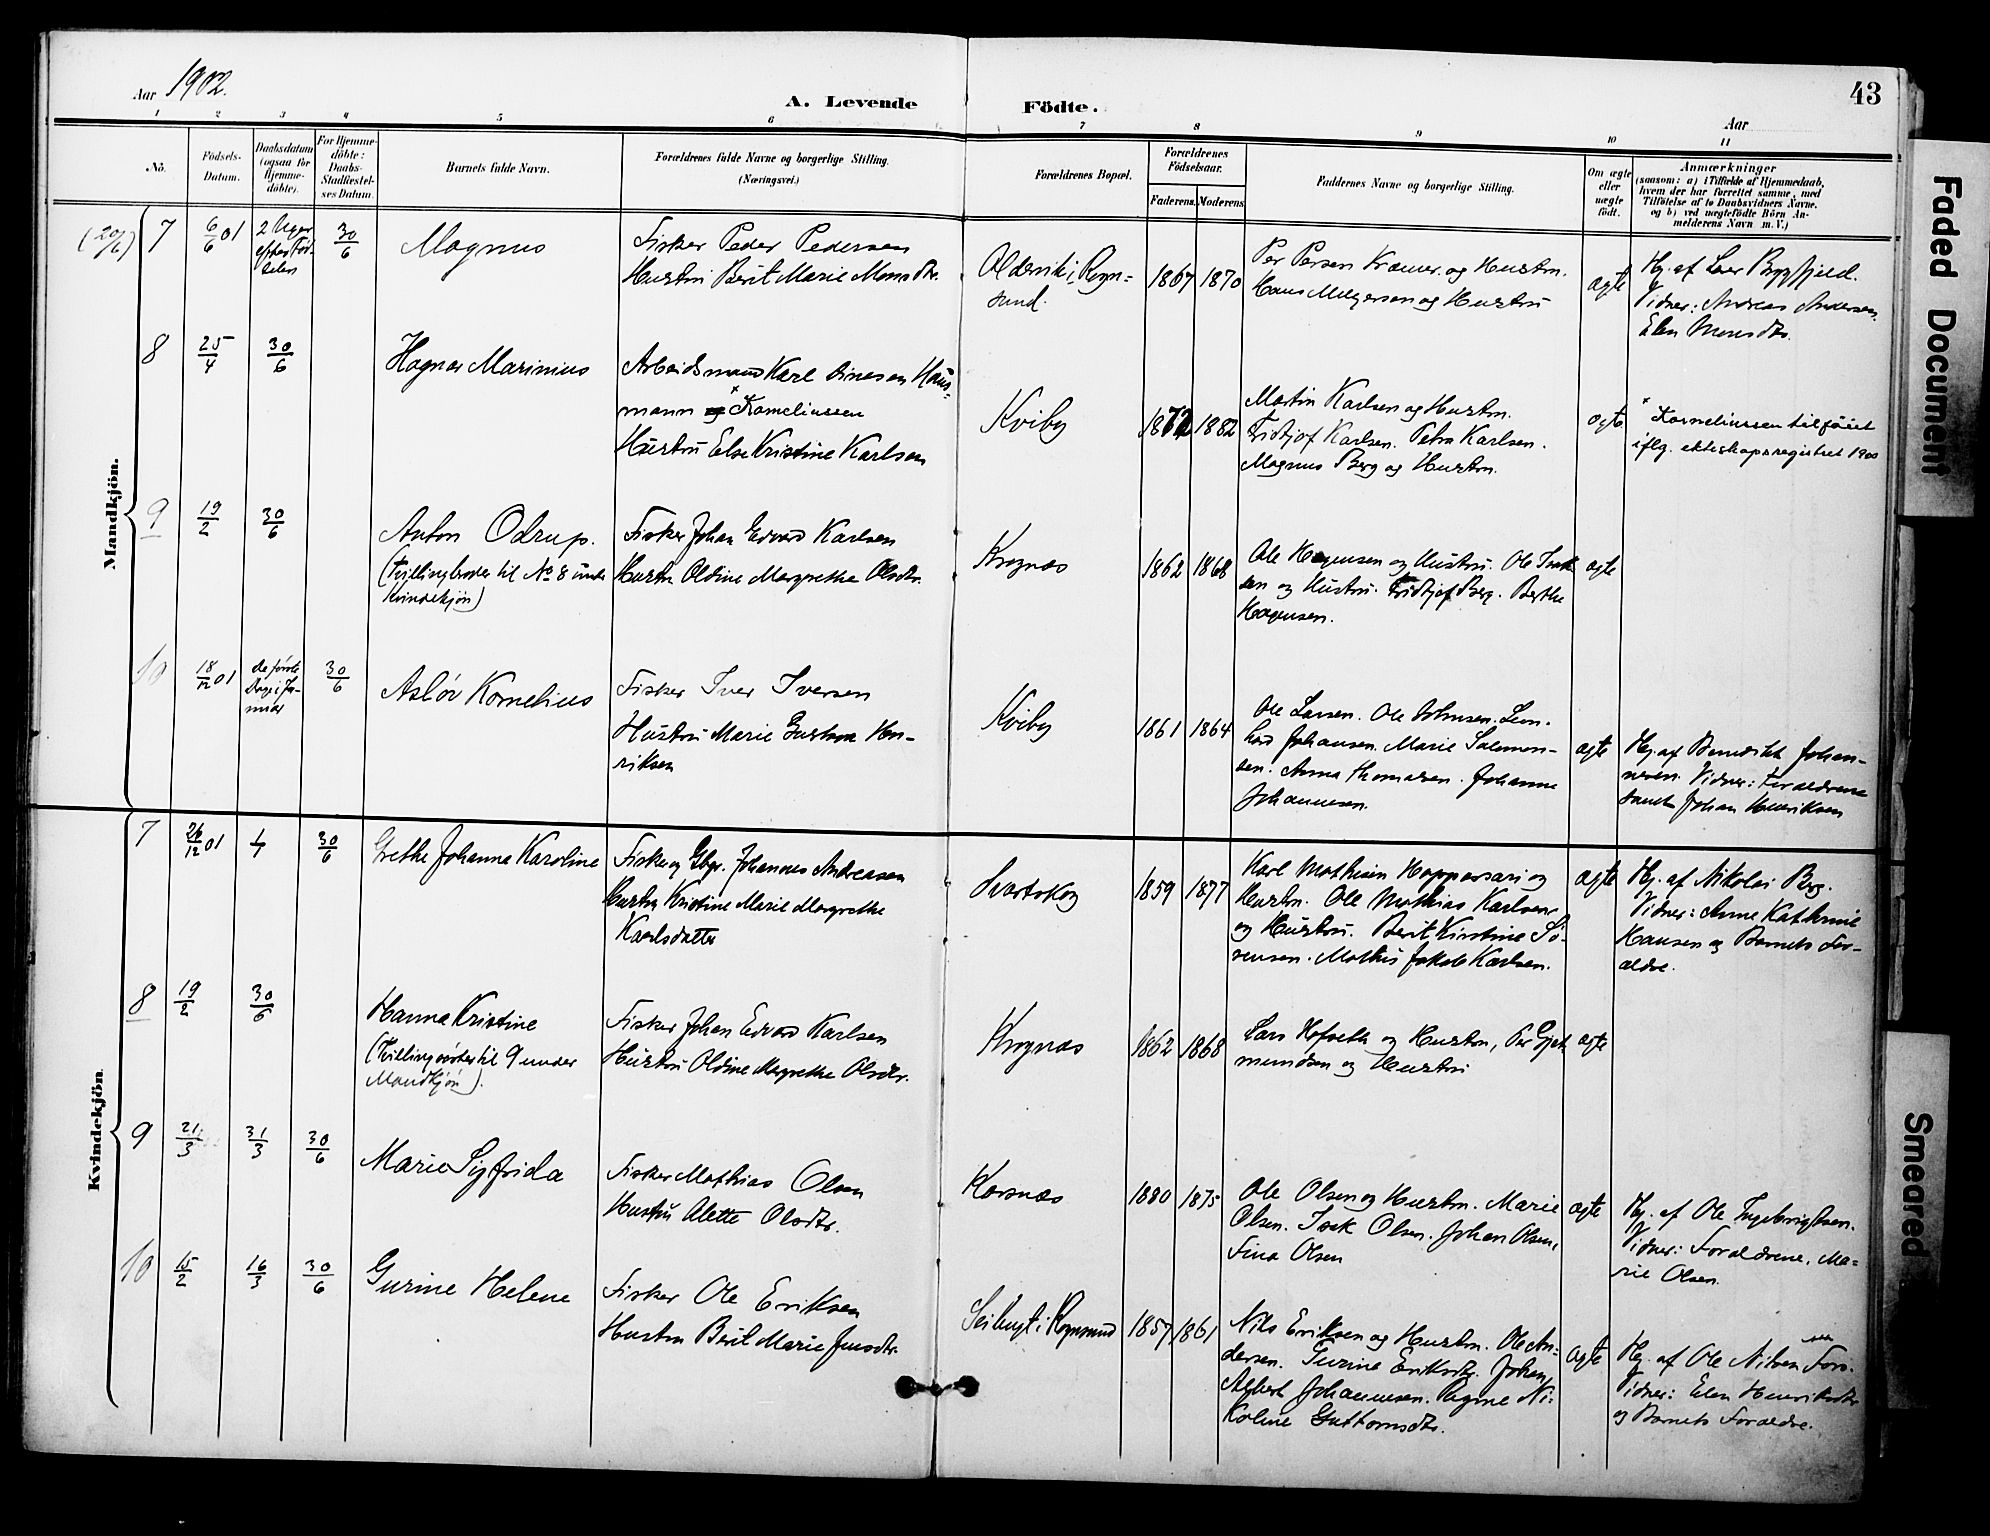 Aar 1902.
A. Levende Födte.
43
Aar
1 2 3 4 5 6 7 8 9 10 11
No.
Födsels-
Datum.
Daabsdatum
(ogsaa for
Hjemme-
döbte).
For Hjemme-
döbte:
Daabs-
Stadfæstel-
ses Datum.
Barnets fulde Navn.
Forældrenes fulde Navne og borgerlige Stilling.
(Næringsvei.)
Forældrenes Bopæl.
Forældrenes
Födselsaar.
Faderens. Moderens.
Faddernes Navne og borgerlige Stilling.
Om ægte
eller
uægte
födt.
Anmærkninger
(saasom: a) i Tilfælde af Hjemmedaab,
hvem der har forrettet samme, med
Tilföielse af to Daabsvidners Navne,
og b) ved uægtefödte Börn An-
melderens Navn m. V.)
Mandkjön.
(20/6) 7
6/6 01
2 Uger
efter Föd-
selen
30/6
Magnus
Fisker Peder Pedersen
Hustru Berit Marie Monsdtr.
Oldervik i Rogn-
sund.
1867 1870
Per Persen Kræmer og Hustru.
Hans Melgersen og Hustru
ægte
Hj. af Lær Byggfjeld.
Vidner: Andreas Andersen.
Elen Monsdtr.
8
25/4
30/6
Hagnar Marinius
Arbeidsmand Karl Hans-
mann og × Korneliussen
Hustru Else Kristine Karlsen
Kviby
1872 1882
Martin Karlsen og Hustru.
Fridtjof Karlsen. Petra Karlsen.
Magnus Berg og Hustru.
ægte
× Korneliussen tilföiet
iflg. ekteskapsregistret 1900
9
19/2
30/6
Anton Odrup.
(Tvillingbroder til No 8 under
Kvindekjön)
Fisker Johan Edvard Karlsen
Hustru Oldine Margrethe Olsdtr.
Krognæs
1862 1868
Ole Hagensen og Hustru. Ole Isak-
sen og Hustru. Fridtjof Berg. Berthe
Hagensen.
ægte
10
18/12 01
de förste
Dage i Ja-
nuar
30/6
Aslöv Kornelius
Fisker Iver Iversen
Hustru Marie Gustava Hen-
riksen
Kviby
1861 1864
Ole Larsen. Ole Johnsen. Leon-
hard Johansen. Marie Salomon-
sen. Anna Thomassen. Johanna
Johannesen.
ægte
Hj. af Benedikt Johan-
nesen. Vidner: Forældrene
samt Johan Henriksen
Kvindekjön.
7
26/12 01
1/1
30/6
Grethe Johanna Karoline
Fisker og Gbgr. Johannes Andreasen
Hustru Kristine Marie Margrethe
Karlsdatter
Svartskog
1859 1877
Karl Mathisen Kopparsari og
Hustru. Ole Mathias Karlsen
og Hustru. Berit Kirstine Sö-
rensen. Mathis Jakob Karlsen.
ægte
Hj. af Nikolai Berg.
Vidner: Anne Kathrine
Hansen og Barnets For-
ældre.
8
19/2
30/6
Hanna Kristine
(Tvillingsöster til 9 under
Mandkjön).
Fisker Johan Edvard Karlsen
Hustru Oldine Margrethe Olsdtr.
Krognæs
1862 1868
Lars Hofseth og Hustru, Per
mundsen og Hustru
ægte
9
21/3
31/3
30/6
Marie Sigfrida
Fisker Mathias Olsen
Hustru Alette Olsdtr.
Korsnæs
1880 1875
Ole Olsen og Hustru. Marie
Olsen. Isak Olsen. Johan Olsen,
Fina Olsen
ægte
Hj. af Ole Ingebrigtsen.
Vidner: Forældrene. Ma-
rie Olsen.
10
15/2
16/3
30/6
Gurine Helene
Fisker Ole Eriksen
Hustru Berit Marie Jensdtr.
Seibugt i Rognsund
1857 1861
Nils Eriksen og Hustru. Ole An-
dersen. Gurine Eriksdtr. Johan
Albert Johannesen. Ragne Ni-
koline Guttormsdtr.
ægte
Hj. af Ole Nilsen
Vidner: Elen Henriksdtr
og Barnets Forældre.
Faded Document
Smeared